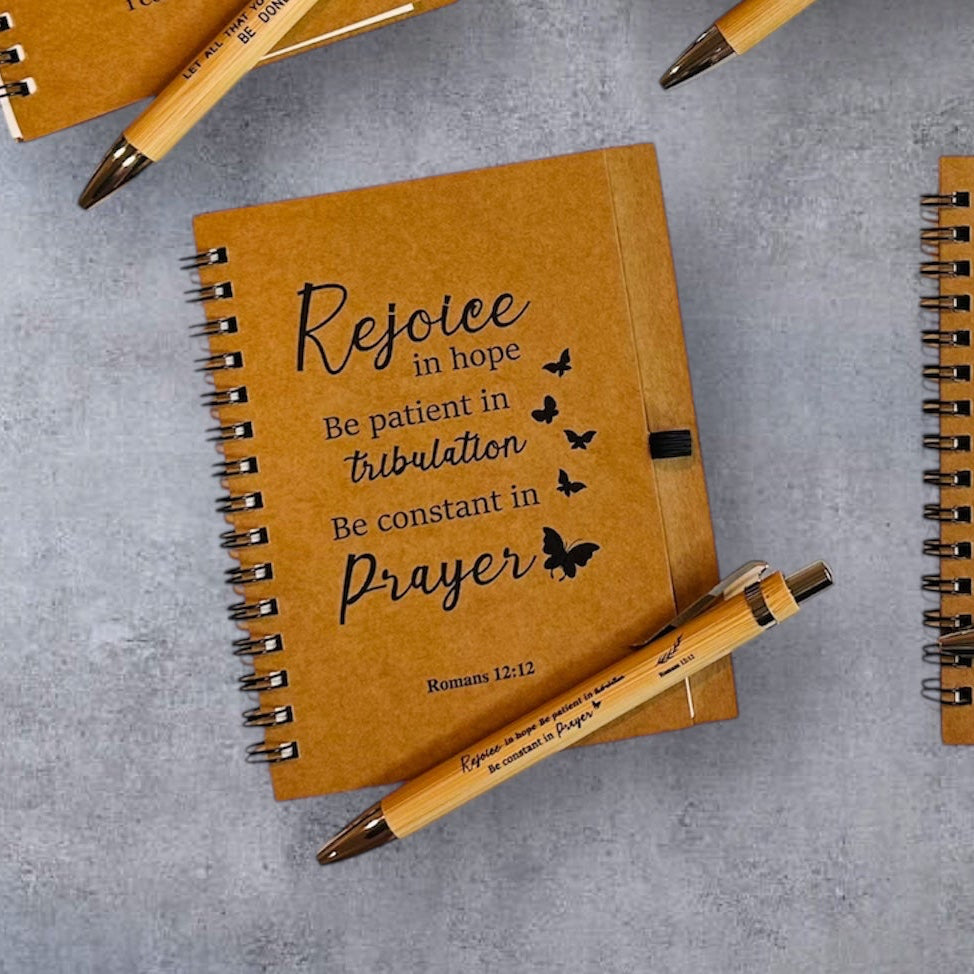 LET ALL THAT YO
BE DONE
Rejoice
in hope
Be patient in
tribulation
Be constant in
Prayer
Romans 12:12
Rejoice in hope Be patient in tribulation
Be constant in Prayer
Romans 12:12